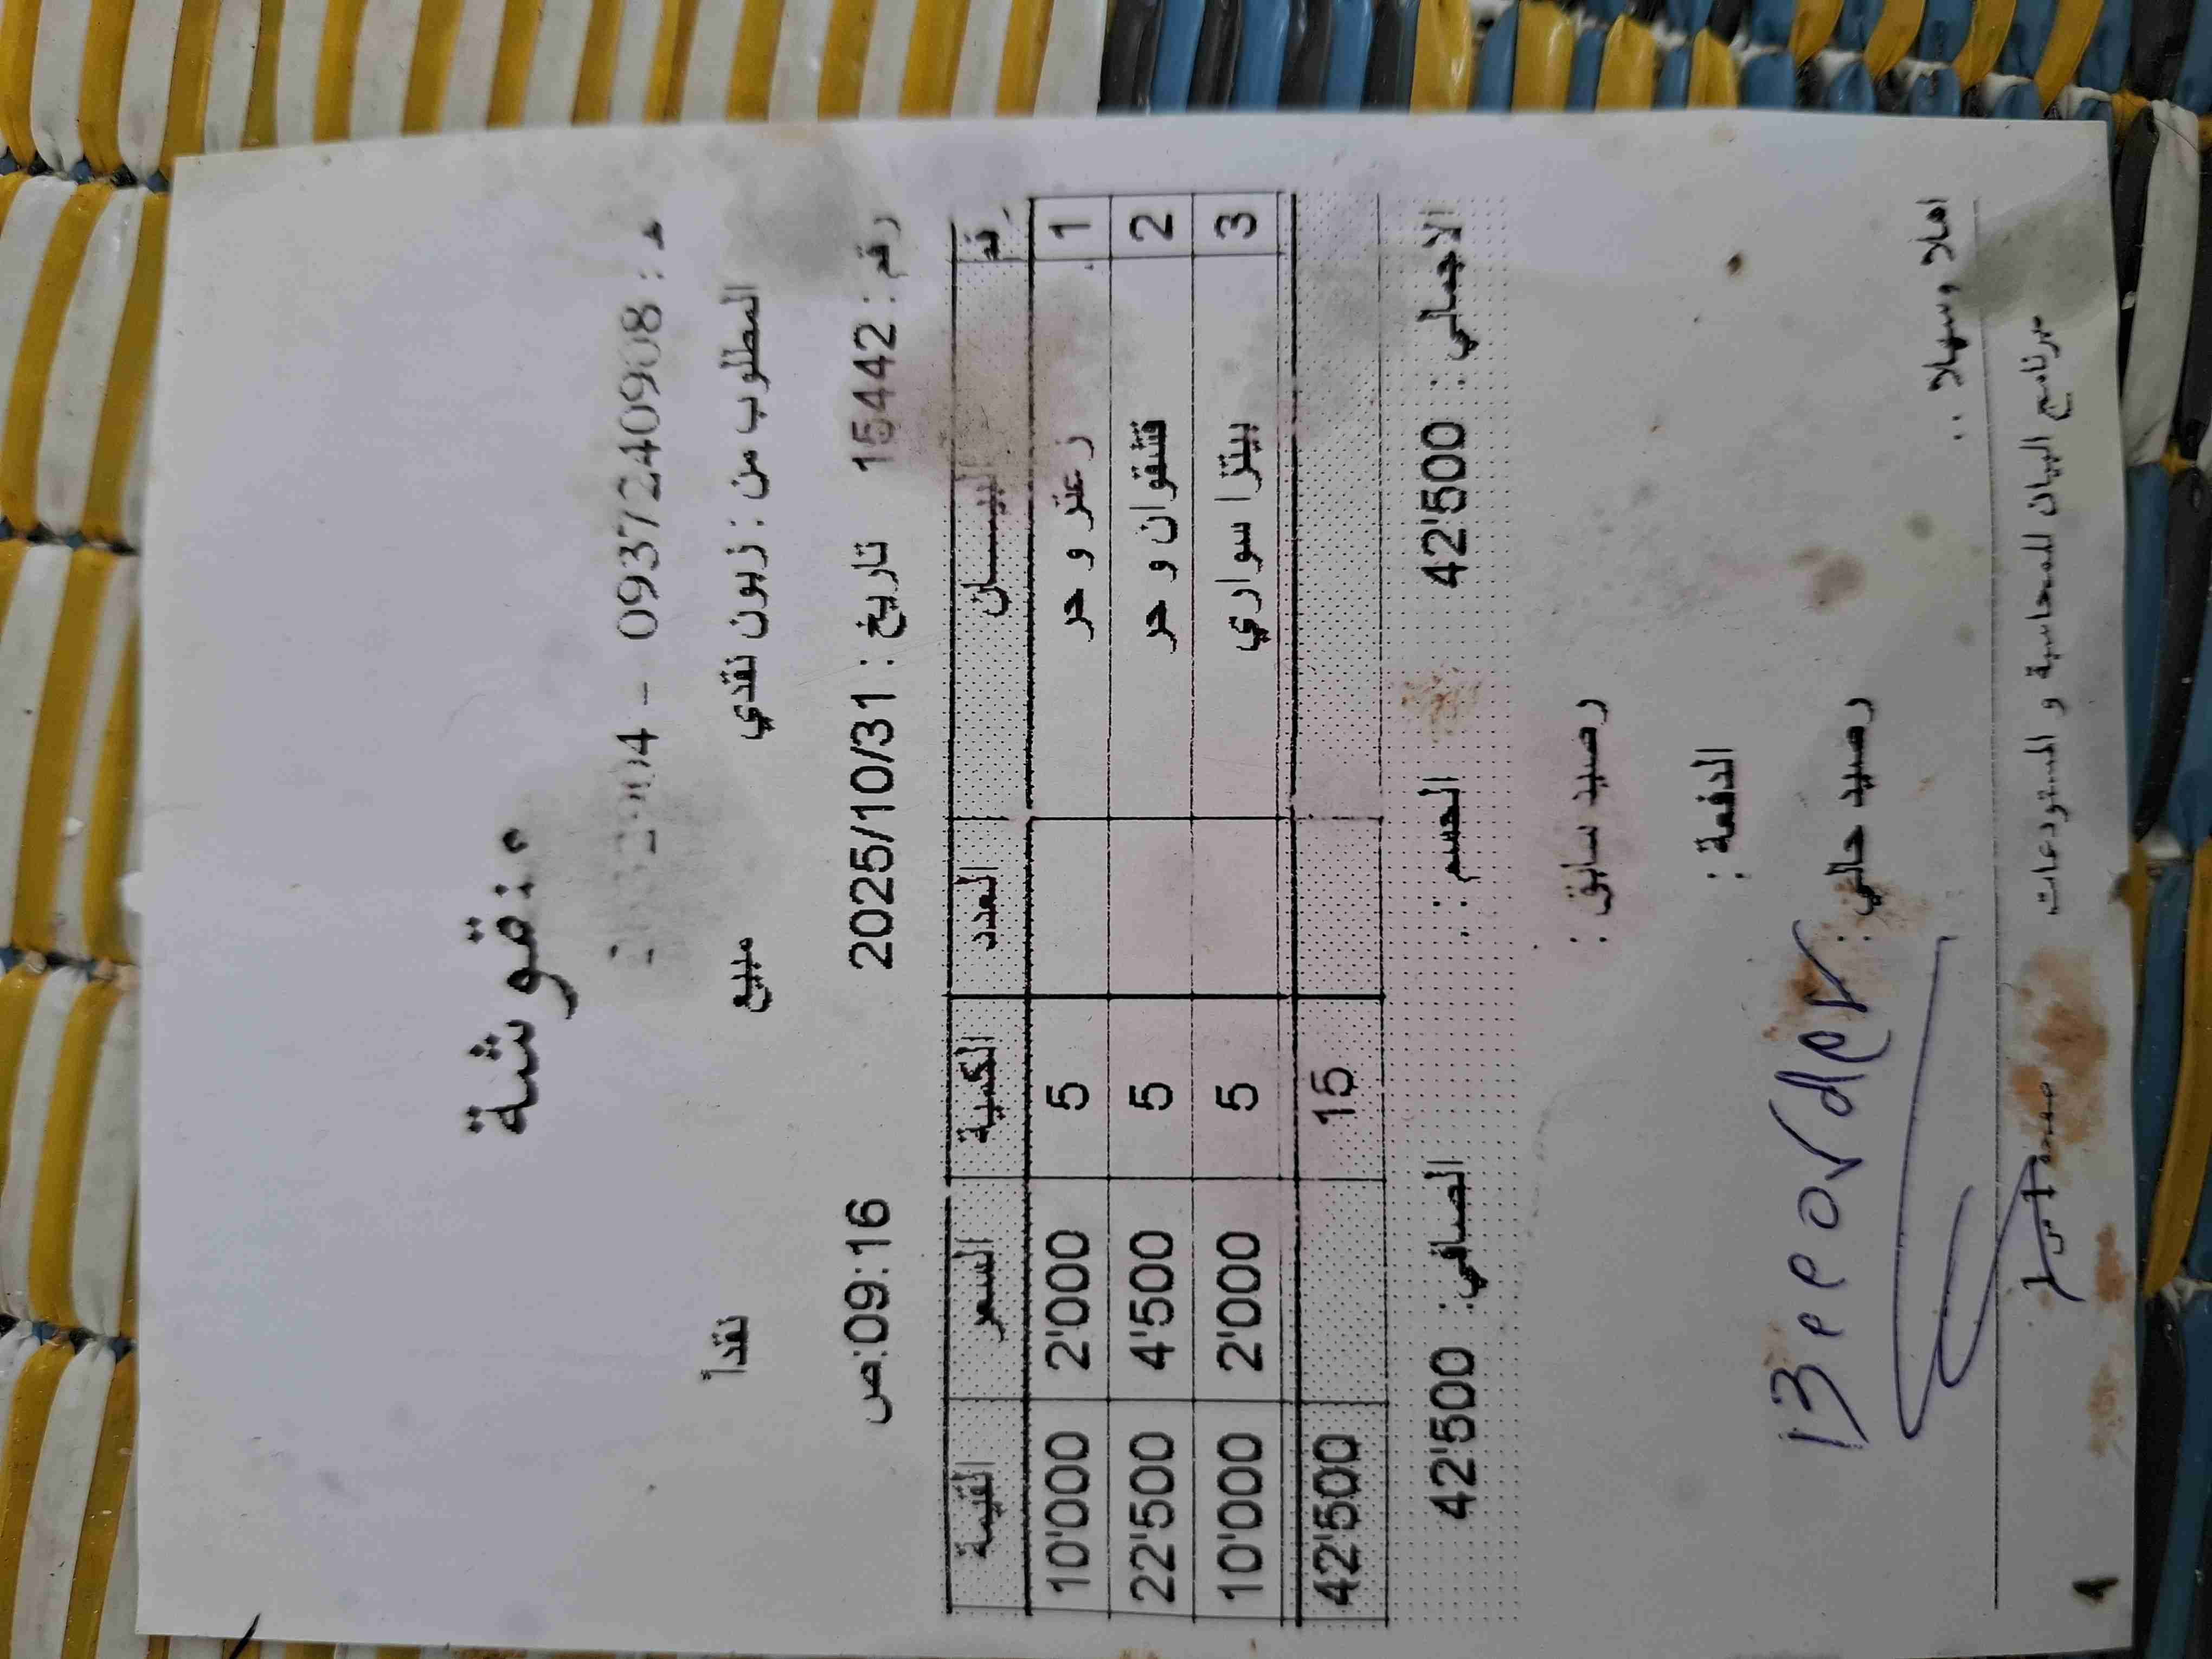 منقوشة
هـ : 0937240908 -
المطلوب من : زبون نقدي مبيع نقداً
رقم : 15442 تاريخ : 2025/10/31 09:16:ص
البيـــــان العدد الكمية السعر القيمة
1 زعتر و حر 5 2'000 10'000
2 قشقوان و حر 5 4'500 22'500
3 بيتزا سواري 5 2'000 10'000
15 42'500
الاجمالي : 42'500 الحسم : الصافي : 42'500
رصيد سابق :
الدفعة :
رصيد حالي :
Beeorder
اهلا وسهلا ..
برنامج البيان للمحاسبة و المستودعات